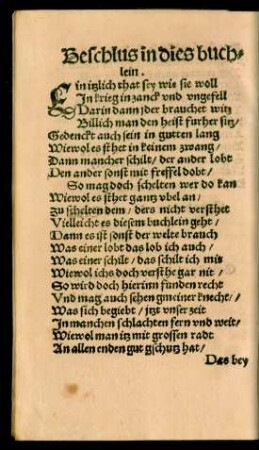 Beschlus in dies buch-
lein.
Ein itzlich that sey wie sie woll
In krieg in zanck vnd vngefell
Darin dann jder brauchet witz
Billich man den heist furher sitz/
Gedenckt auch sein in gutten lang
Wiewol es sthet in keinem zwang/
Dann mancher schilt/ der ander lobt
Den ander sonst mit freffel dobt/
So mag doch schelten wer do kan
Wiewol es sthet gantz vbel an/
Zu schelten dem/ ders nicht versthet
Vielleicht es diesem buchlein geht/
Dann es ist sonst der welte brauch
Was einer lobt das lob ich auch/
Was einer schilt/ das schilt ich mit
Wiewol ichs doch versthe gar nit/
So wird doch hierinn funden recht
Vnd mag auch sehen gmeiner knecht/
Was sich begiebt/ jtzt vnser zeit
In manchen schlachten fern vnd weit/
Wiewol man itz mit grossen radt
An allen enden gut gschutz hat/
Das bey